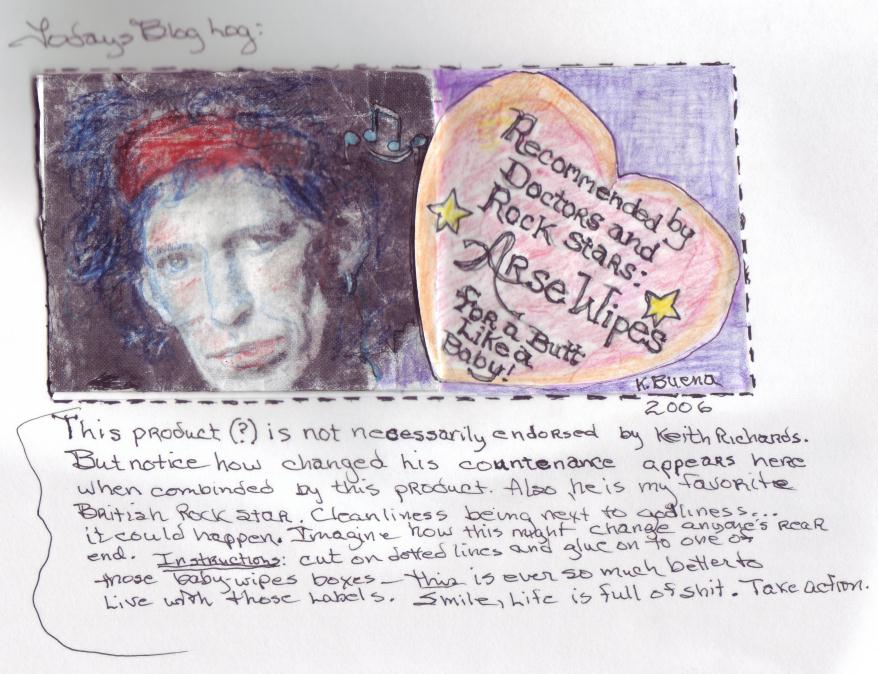 Todays Blog hog:
Recommended by
Doctors and
Rock Stars:
Arse Wipes
for a Butt
Like a
Baby!
K. Buena
2006
This product (?) is not necessarily endorsed by Keith Richards.
But notice how changed his countenance appears here
when combinded by this product. Also, he is my favorite
British Rock star. Cleanliness being next to godliness...
it could happen. Imagine how this might change anyone's rear
end. Instructions: cut on dotted lines and glue on to one of
those baby-wipes boxes — this is ever so much better to
Live with those Labels. Smile, Life is full of shit. Take action.